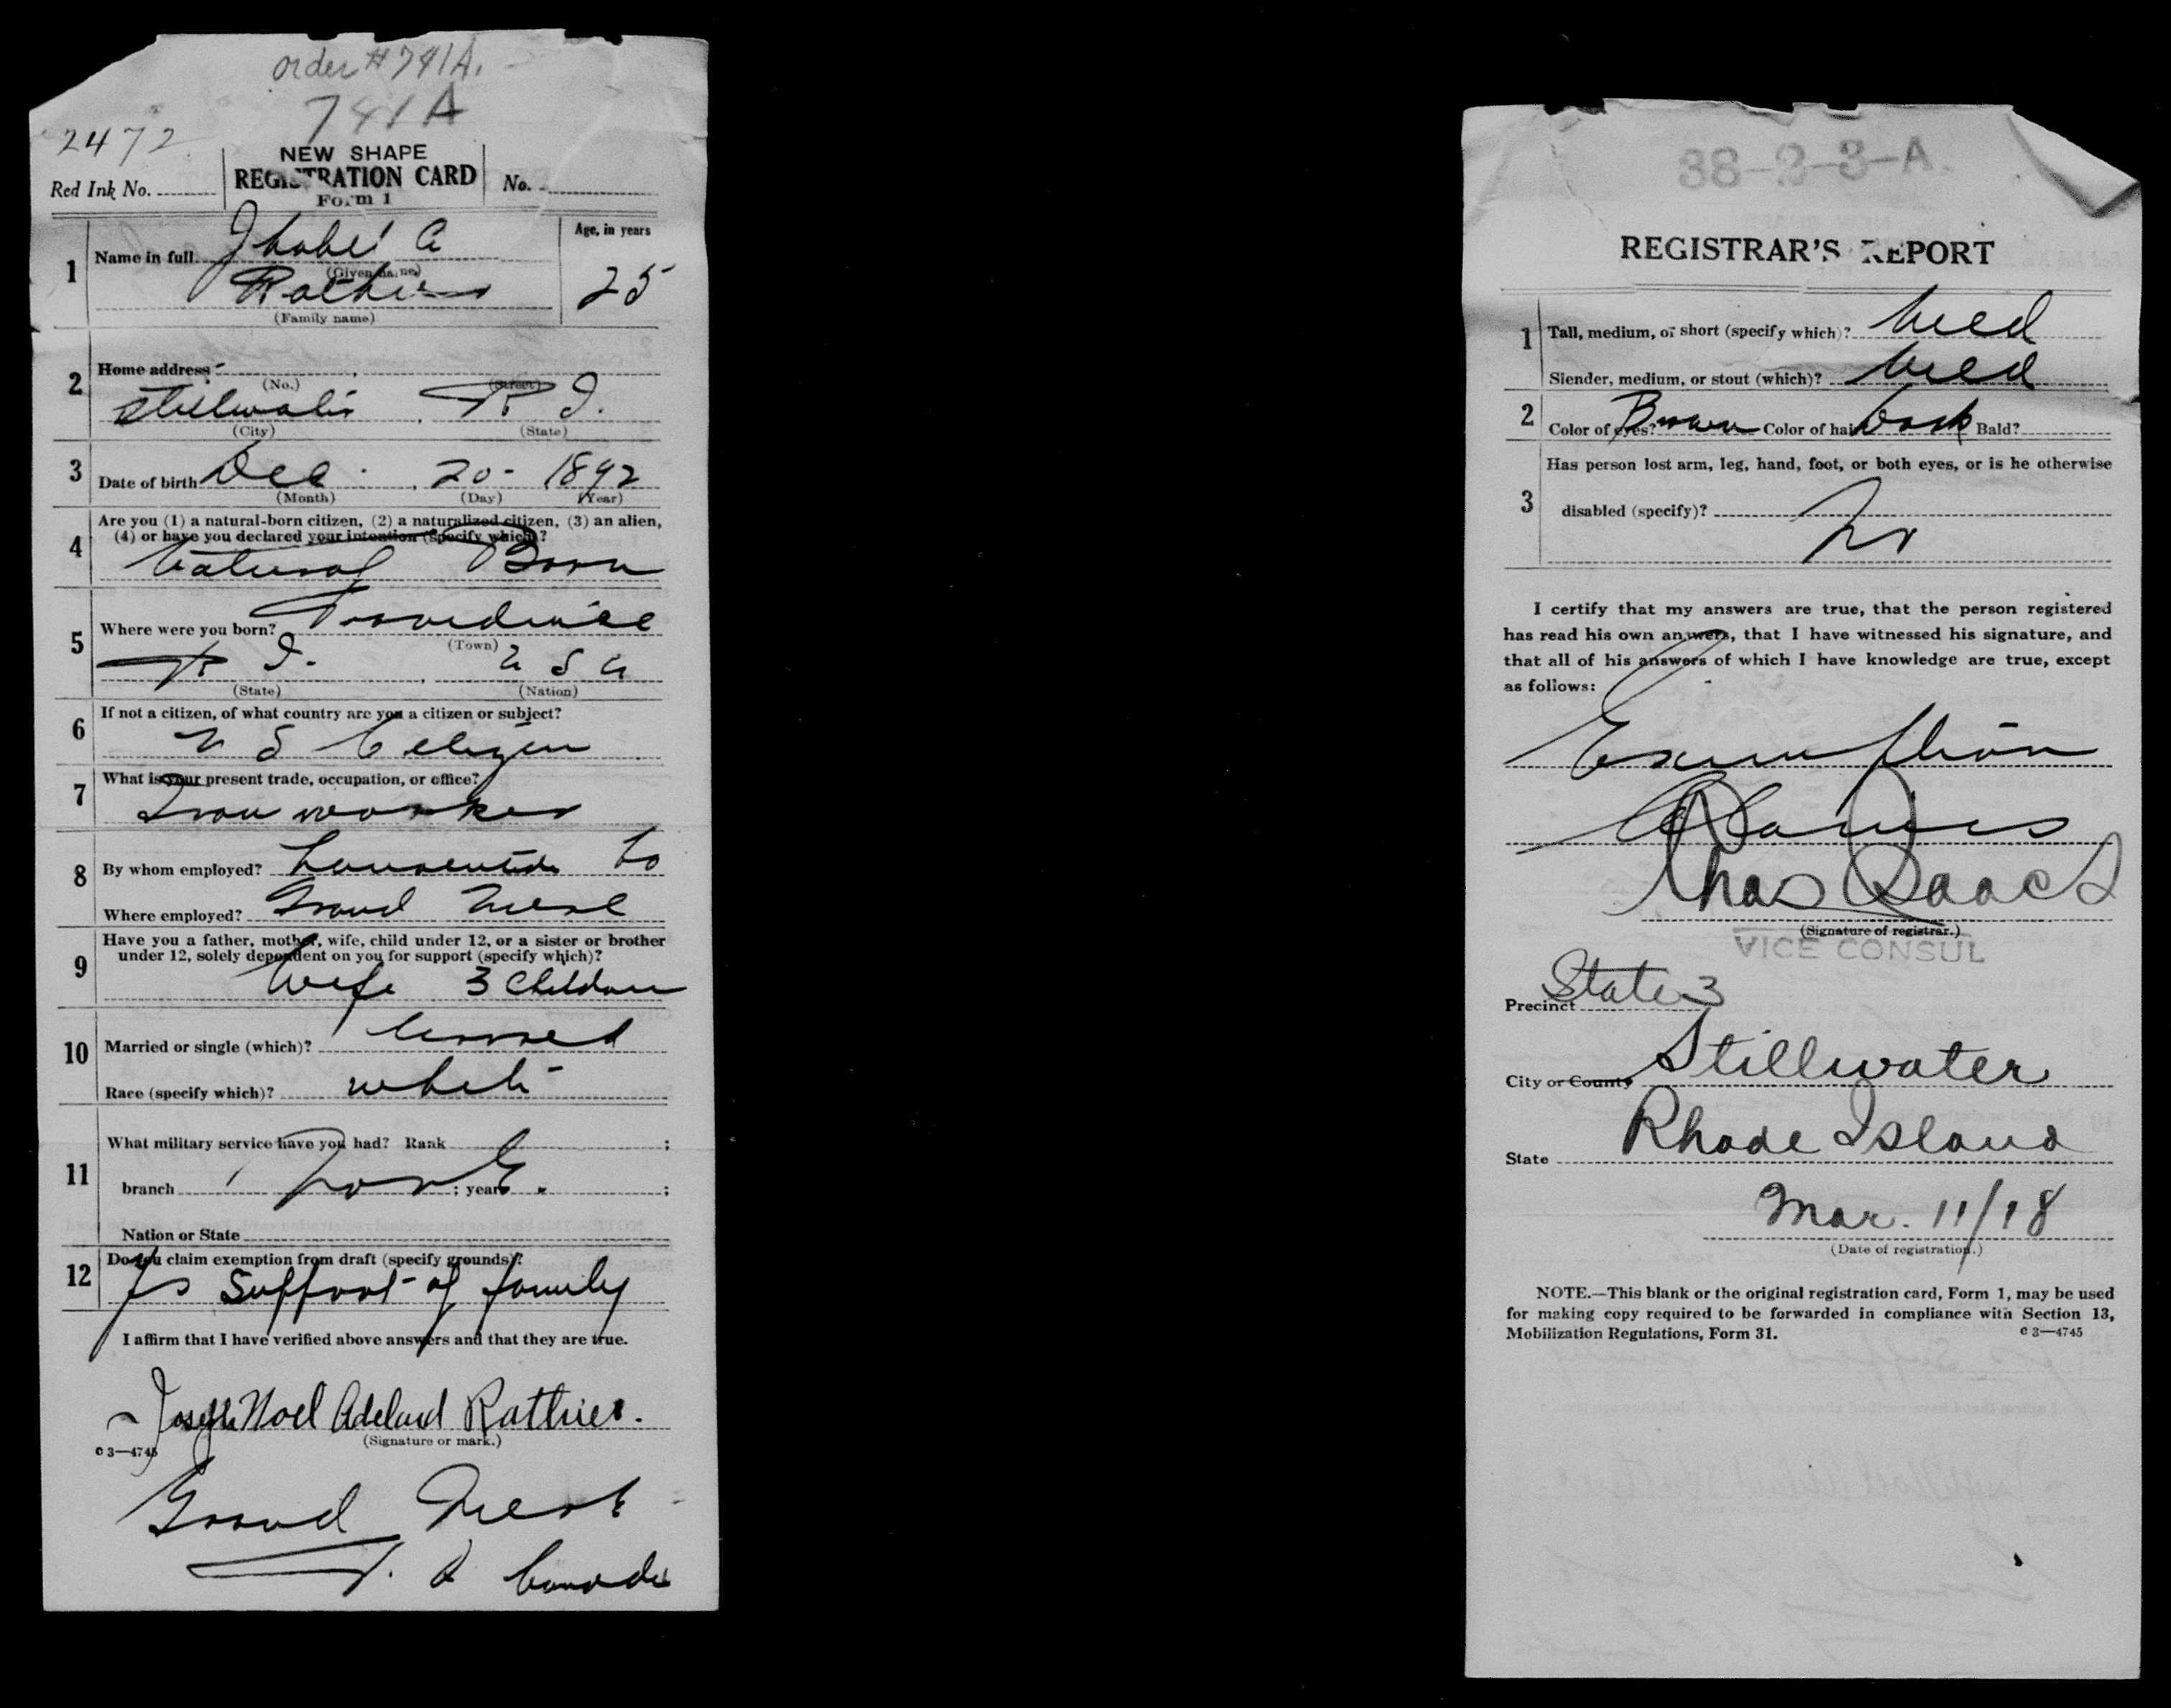 order # 741A.
741A
2472
NEW SHAPE
Red Ink No. REGISTRATION CARD No.
Form 1
1 Name in full A Age, in years
(Given name)
25
(Family name)
2 Home address
(No.) (Street)
R I.
(City) (State)
3 Date of birth Dec. 20 - 1892
(Month) (Day) (Year)
Are you (1) a natural-born citizen, (2) a naturalized citizen, (3) an alien,
4 (4) or have you declared your intention (specify which)?
Natural Born
5 Where were you born? Providence
(Town)
R I. U S A
(State) (Nation)
6 If not a citizen, of what country are you a citizen or subject?
U S Citizen
7 What is your present trade, occupation, or office?
Iron worker
8 By whom employed? Co
Where employed? Grand Mere
9 Have you a father, mother, wife, child under 12, or a sister or brother
under 12, solely dependent on you for support (specify which)?
Wife 3 Children
10 Married or single (which)?
Race (specify which)? white
11 What military service have you had? Rank ;
branch None ; years ;
Nation or State
12 Do you claim exemption from draft (specify grounds)?
Yes Support of family
I affirm that I have verified above answers and that they are true.
Joseph Noel Adelard Rathier.
(Signature or mark.)
C 3—4745
Grand Mere
P. Q Canada
38-2-3-A.
REGISTRAR'S REPORT
1 Tall, medium, or short (specify which)? Med
Slender, medium, or stout (which)? Med
2 Color of eyes? Brown Color of hair Dark Bald?
Has person lost arm, leg, hand, foot, or both eyes, or is he otherwise
3 disabled (specify)? No
I certify that my answers are true, that the person registered
has read his own answers, that I have witnessed his signature, and
that all of his answers of which I have knowledge are true, except
as follows:
Exemption
Claims
Chas Isaacs
(Signature of registrar.)
VICE CONSUL
Precinct State 3
City or County Stillwater
State Rhode Island
Mar. 11/18
(Date of registration.)
NOTE.—This blank or the original registration card, Form 1, may be used
for making copy required to be forwarded in compliance with Section 13,
Mobilization Regulations, Form 31. C 3—4745